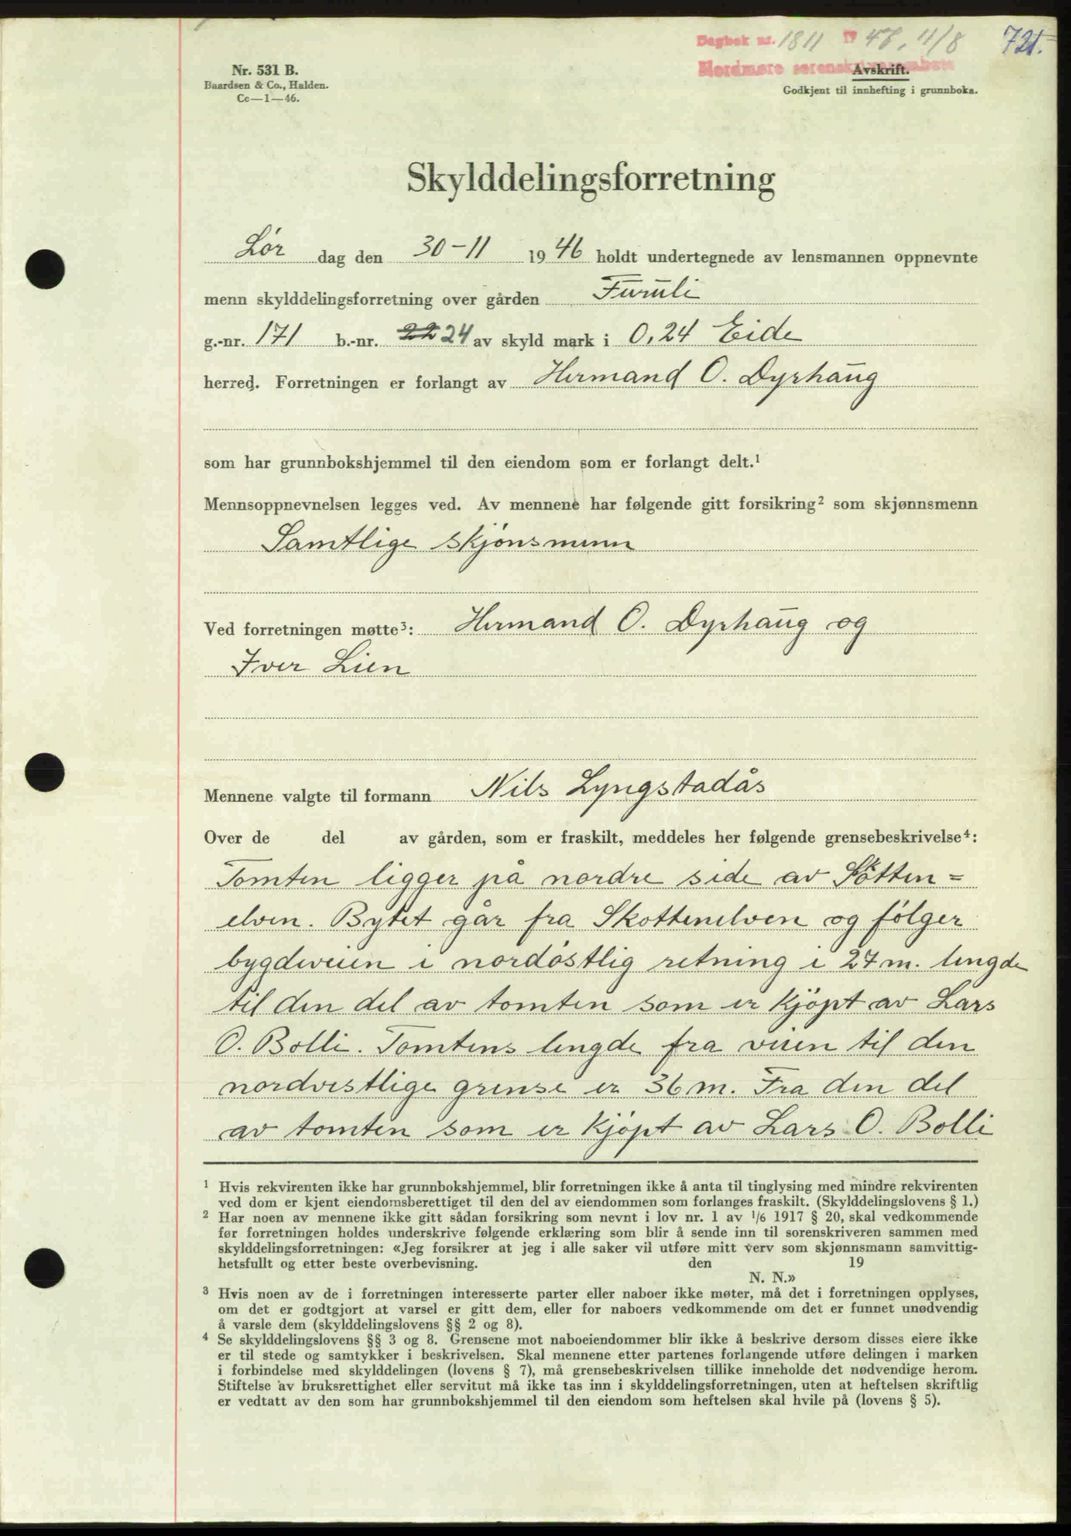 Dagbok nr. 1811 19 47, 11/8 721.
Nordmøre sorenskriverembete
Nr. 531 B.
Baardsen & Co., Halden.
Cc—1—46.
Avskrift.
Godkjent til innhefting i grunnboka.
Skylddelingsforretning
Lør dag den 30-11 1946 holdt undertegnede av lensmannen oppnevnte
menn skylddelingsforretning over gården Furuli
g.-nr. 171 b.-nr. 22 24 av skyld mark i 0,24 Eide
herred. Forretningen er forlangt av Hermand O. Dyrhaug
som har grunnbokshjemmel til den eiendom som er forlangt delt.¹
Mennsoppnevnelsen legges ved. Av mennene har følgende gitt forsikring² som skjønnsmenn
Samtlige skjønsmenn
Ved forretningen møtte³: Hermand O. Dyrhaug og
Iver Lien
Mennene valgte til formann Nils Lyngstadås
Over de del av gården, som er fraskilt, meddeles her følgende grensebeskrivelse⁴:
Tomten ligger på nordre side av Skotten=
elven. Bytet går fra Skottenelven og følger
bygdeveien i nordøstlig retning i 27 m. lengde
til den del av tomten som er kjøpt av Lars
O. Bolli. Tomtens lengde fra veien til den
nordvestlige grense er 36 m. Fra den del
av tomten som er kjøpt av Lars O. Bolli
¹ Hvis rekvirenten ikke har grunnbokshjemmel, blir forretningen ikke å anta til tinglysing med mindre rekvirenten
ved dom er kjent eiendomsberettiget til den del av eiendommen som forlanges fraskilt. (Skylddelingslovens § 1.)
² Har noen av mennene ikke gitt sådan forsikring som nevnt i lov nr. 1 av 1/6 1917 § 20, skal vedkommende
før forretningen holdes underskrive følgende erklæring som blir å sende inn til sorenskriveren sammen med
skylddelingsforretningen: «Jeg forsikrer at jeg i alle saker vil utføre mitt verv som skjønnsmann samvittig-
hetsfullt og etter beste overbevisning. den 19
N. N.»
³ Hvis noen av de i forretningen interesserte parter eller naboer ikke møter, må det i forretningen opplyses,
om det er godtgjort at varsel er gitt dem, eller for naboers vedkommende om det er funnet unødvendig
å varsle dem (skylddelingslovens §§ 2 og 8).
⁴ Se skylddelingslovens §§ 3 og 8. Grensene mot naboeiendommer blir ikke å beskrive dersom disses eiere ikke
er til stede og samtykker i beskrivelsen. Skal mennene etter partenes forlangende utføre delingen i marken
i forbindelse med skylddelingen (lovens § 7), må grensebeskrivelsen tillike inneholde det nødvendige herom.
Stiftelse av bruksrettighet eller servitut må ikke tas inn i skylddelingsforretningen, uten at heftelsen skriftlig
er vedtatt av den som har grunnbokshjemmel til den eiendom som heftelsen skal hvile på (lovens § 5).